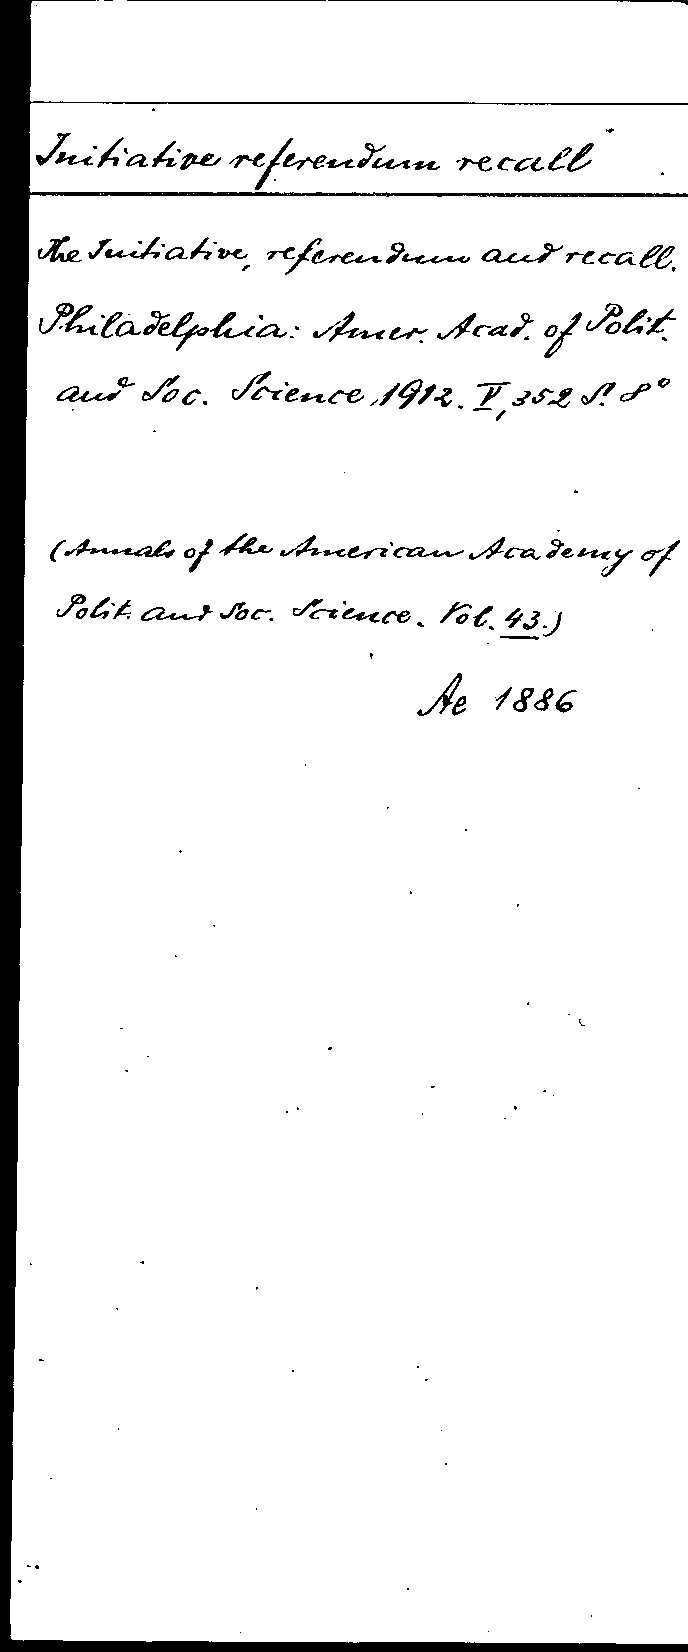 Initiative referendum recall
The Initiative, referendum and recall.
Philadelphia: Amer. Acad. of Polit.
and Soc. Science 1912. V, 352 S. 8°
(Annals of the American Academy of
Polit. and Soc. Science. Vol. 43.)
Ae 1886